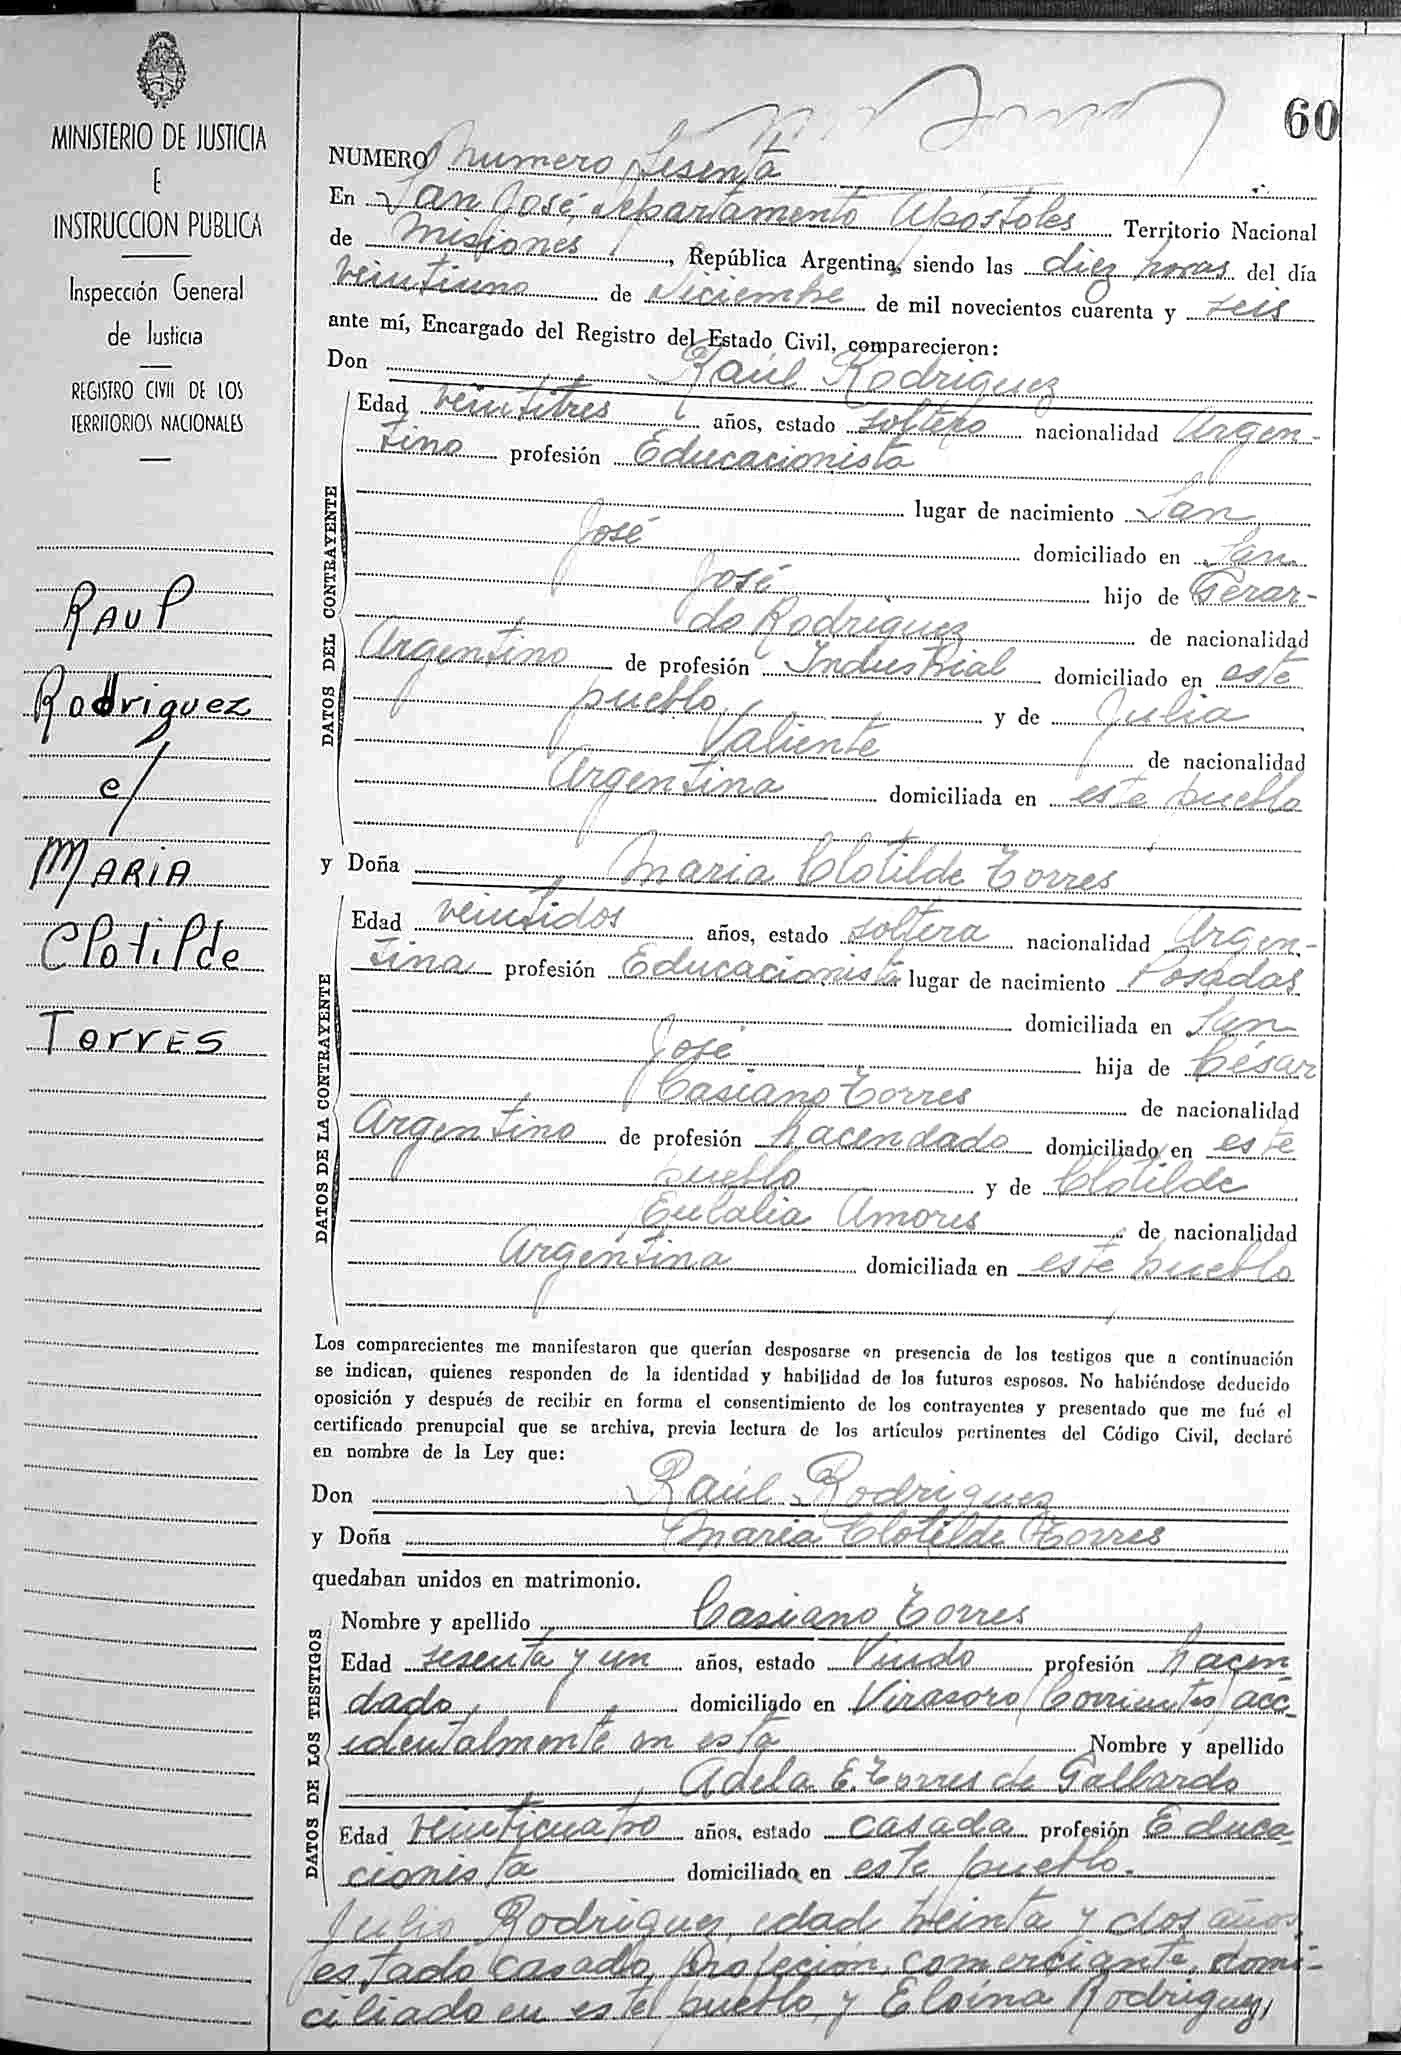 60
MINISTERIO DE JUSTICIA
E
INSTRUCCION PUBLICA
Inspección General
de Justicia
REGISTRO CIVIL DE LOS
TERRITORIOS NACIONALES
RAUl
Rodriguez
c/
MARIA
Clotilde
TorrES
NUMERO numero Sesenta
En San José, departamento Apóstoles Territorio Nacional
de Misiones, República Argentina, siendo las diez horas del día
veintiuno de Diciembre de mil novecientos cuarenta y seis
ante mí, Encargado del Registro del Estado Civil, comparecieron:
Don Raúl Rodriguez
DATOS DEL CONTRAYENTE
Edad veintitres años, estado soltero nacionalidad Argen-
tino profesión Educacionista
lugar de nacimiento San
José domiciliado en San
José hijo de Gerar-
do Rodriguez de nacionalidad
Argentino de profesión Industrial domiciliado en este
pueblo y de Julia
Valiente de nacionalidad
Argentina domiciliada en este pueblo
y Doña Maria Clotilde Torres
DATOS DE LA CONTRAYENTE
Edad veintidos años, estado soltera nacionalidad Argen-
tina profesión Educacionista lugar de nacimiento Posadas
domiciliada en San
José hija de César
Casiano Torres de nacionalidad
Argentino de profesión hacendado domiciliado en este
pueblo y de Clotilde
Eulalia Amores de nacionalidad
Argentina domiciliada en este pueblo
Los comparecientes me manifestaron que querían desposarse en presencia de los testigos que a continuación
se indican, quienes responden de la identidad y habilidad de los futuros esposos. No habiéndose deducido
oposición y después de recibir en forma el consentimiento de los contrayentes y presentado que me fué el
certificado prenupcial que se archiva, previa lectura de los artículos pertinentes del Código Civil, declaré
en nombre de la Ley que:
Don Raúl Rodriguez
y Doña Maria Clotilde Torres
quedaban unidos en matrimonio.
DATOS DE LOS TESTIGOS
Nombre y apellido Casiano Torres
Edad sesenta y un años, estado Viudo profesión hacen
dado domiciliado en Virasoro (Corrientes) acc
identalmente en esta Nombre y apellido
Adela E. Torres de Gallardo
Edad veinticuatro años, estado casada profesión Educa-
cionista domiciliado en este pueblo.
Julio Rodriguez, edad treinta y dos años,
estado casado, profeción comerciante, domi-
ciliado en este pueblo, y Eloina Rodriguez,